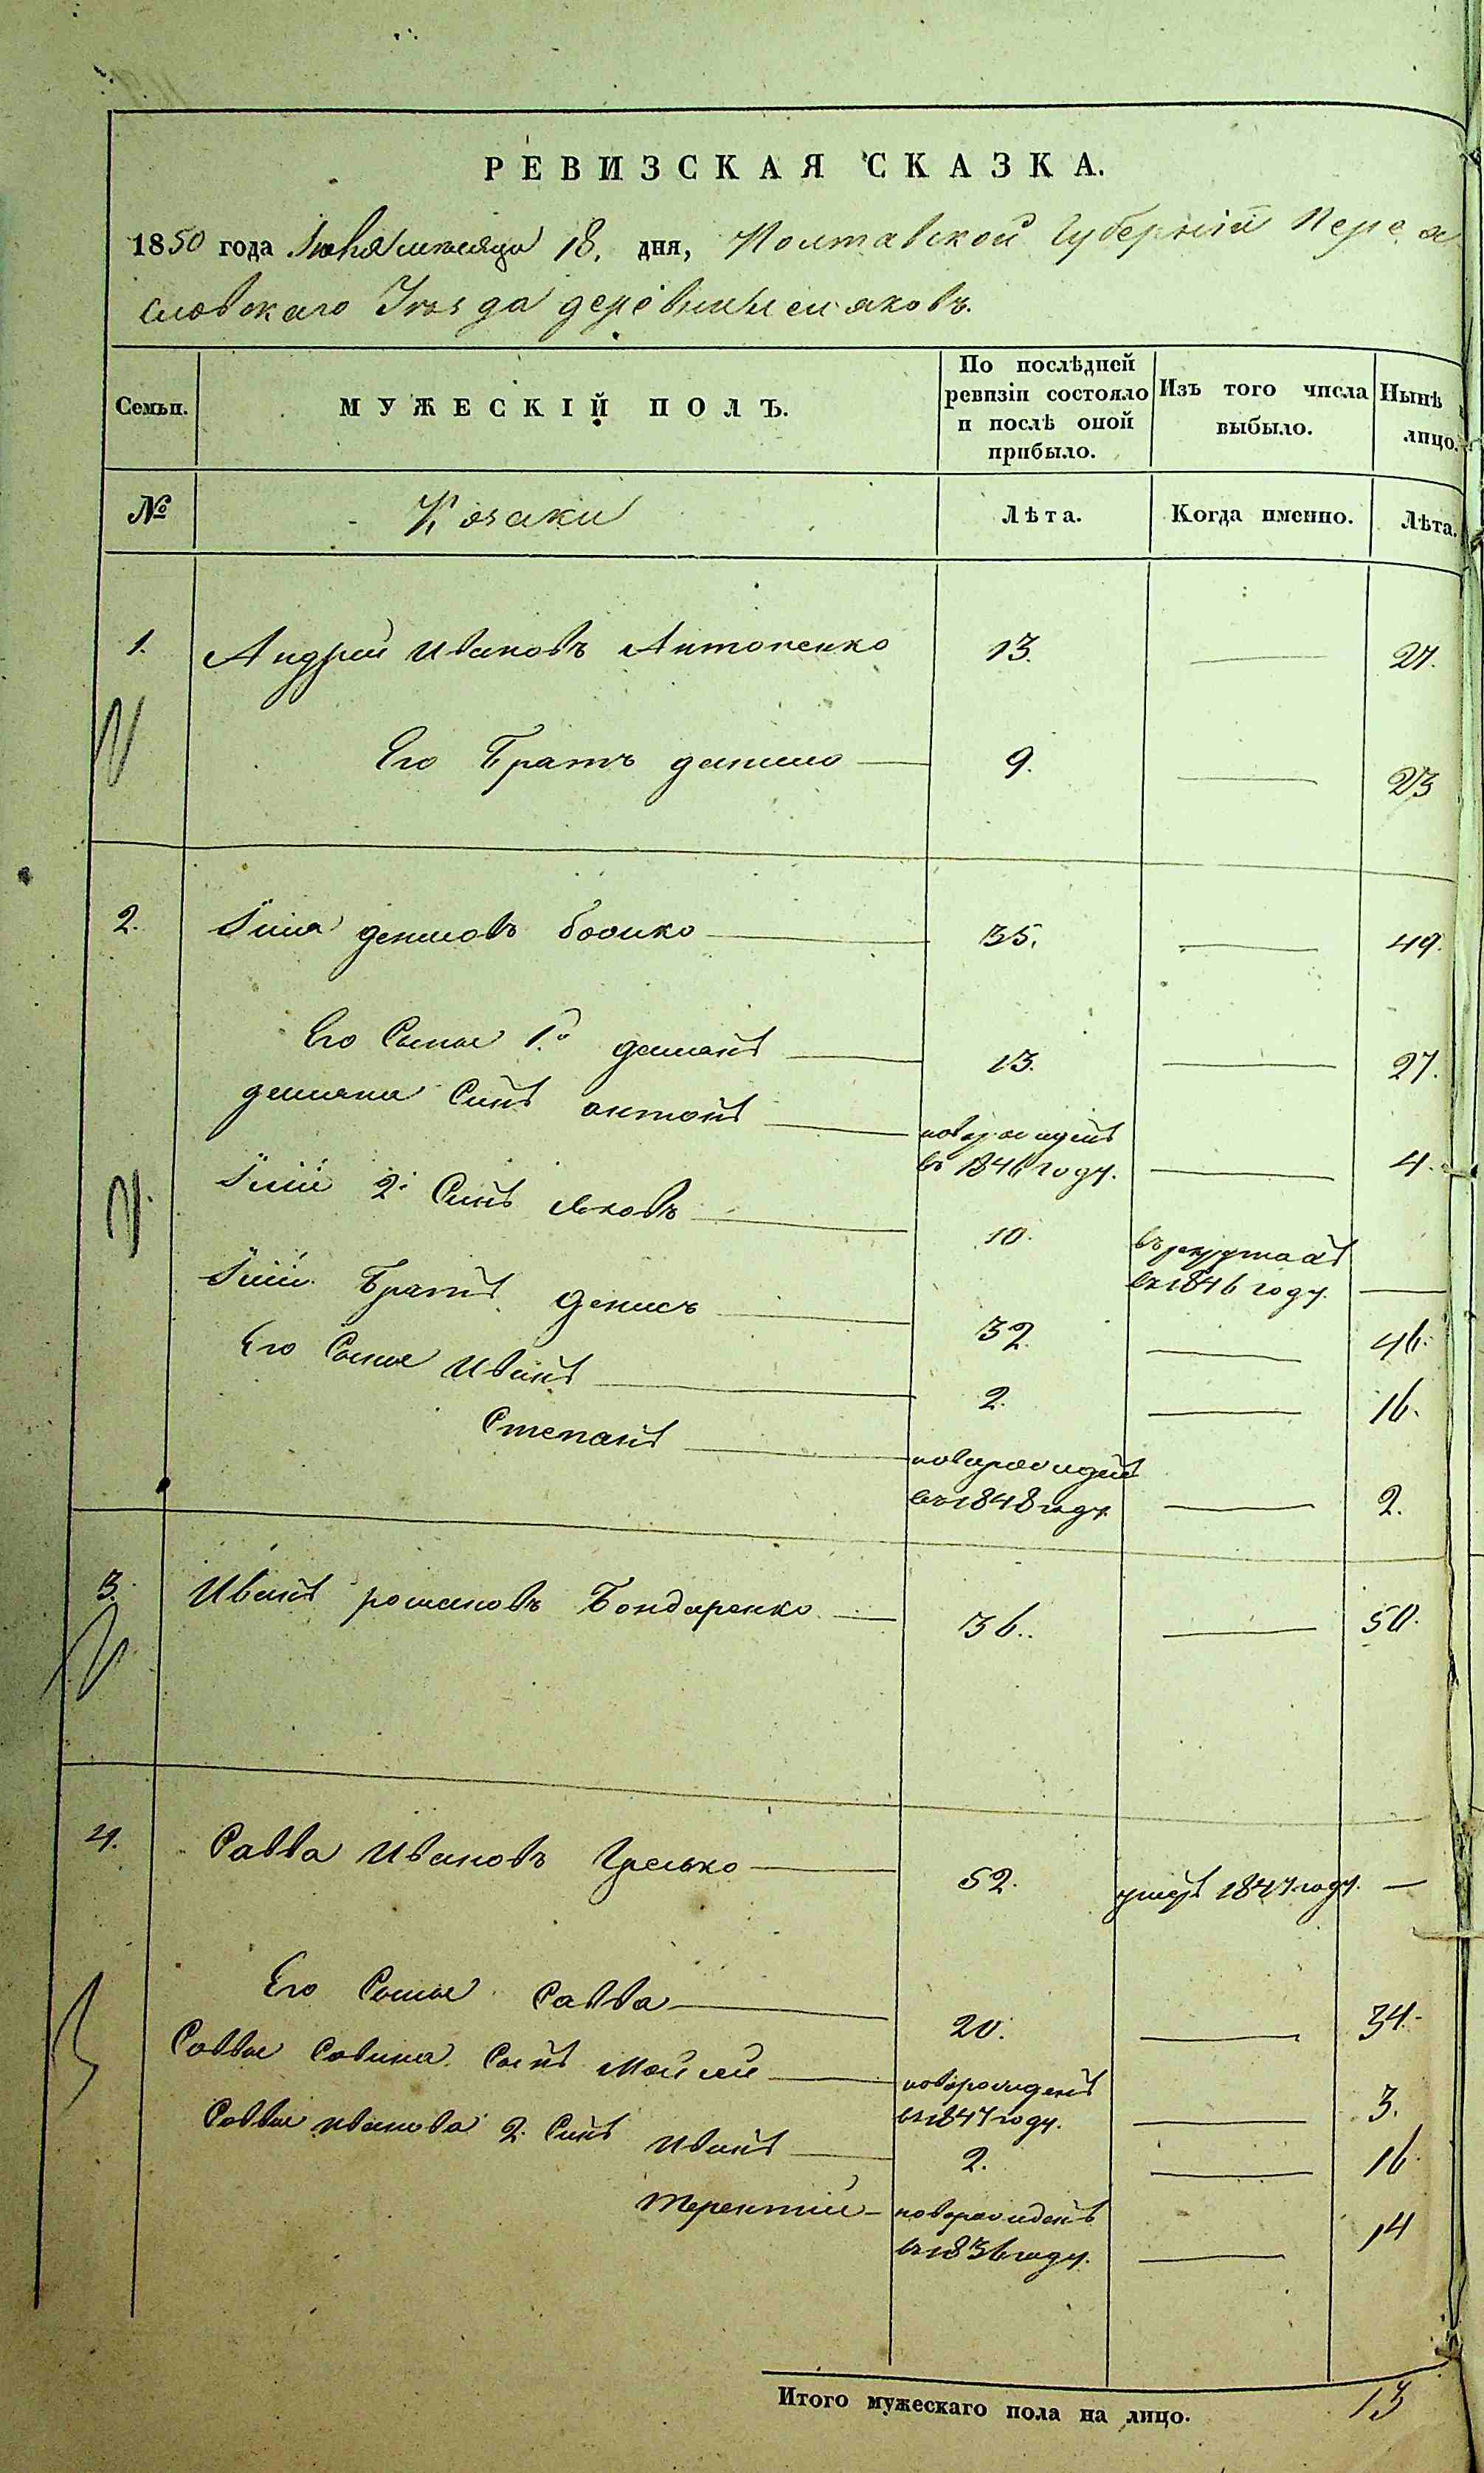 РЕВИЗСКАЯ СКАЗКА.
1850 года Іюня месяца 18. дня, Полтавской Губерніи Перея
словскаго Уезда деревни
Семьи.
МУЖЕСКІЙ ПОЛЪ.
По послѣдней ревизіи состояло и послѣ оной прибыло.
Изъ того числа выбыло.
Нынѣ лицо.
№
Козаки
Лѣта.
Когда именно.
Лѣта.
1. Андрей Ивановъ Антоненко 13. — 27.
Его Братъ данило — 9. — 23
2. денисовъ бойко — 35. — 49.
Его Сынъ 1й демянъ — 13. — 27.
демяна Сынъ антонъ — новорожденъ
въ 1846 году. — 4.
2й Сынъ Яковъ — 10. въ рекрута
въ 1846 году. —
Братъ денисъ — 32. — 46.
Его Сынъ Иванъ — 2. — 16.
Степанъ — новорожденъ
въ 1848 году. — 2.
3. Иванъ романовъ Бондаренко — 36. — 50.
4. Савва Ивановъ — 52. умеръ 1847 году. —
Его Сынъ Савва — 20. — 34.
Саввы Савина Сынъ Мойсей — новорожденъ
въ 1847 году. — 3.
Саввы иванова 2. Сынъ Иванъ — 2. — 16.
терентий — новорожденъ
въ 1836 году. — 14
Итого мужескаго пола на лицо. 13